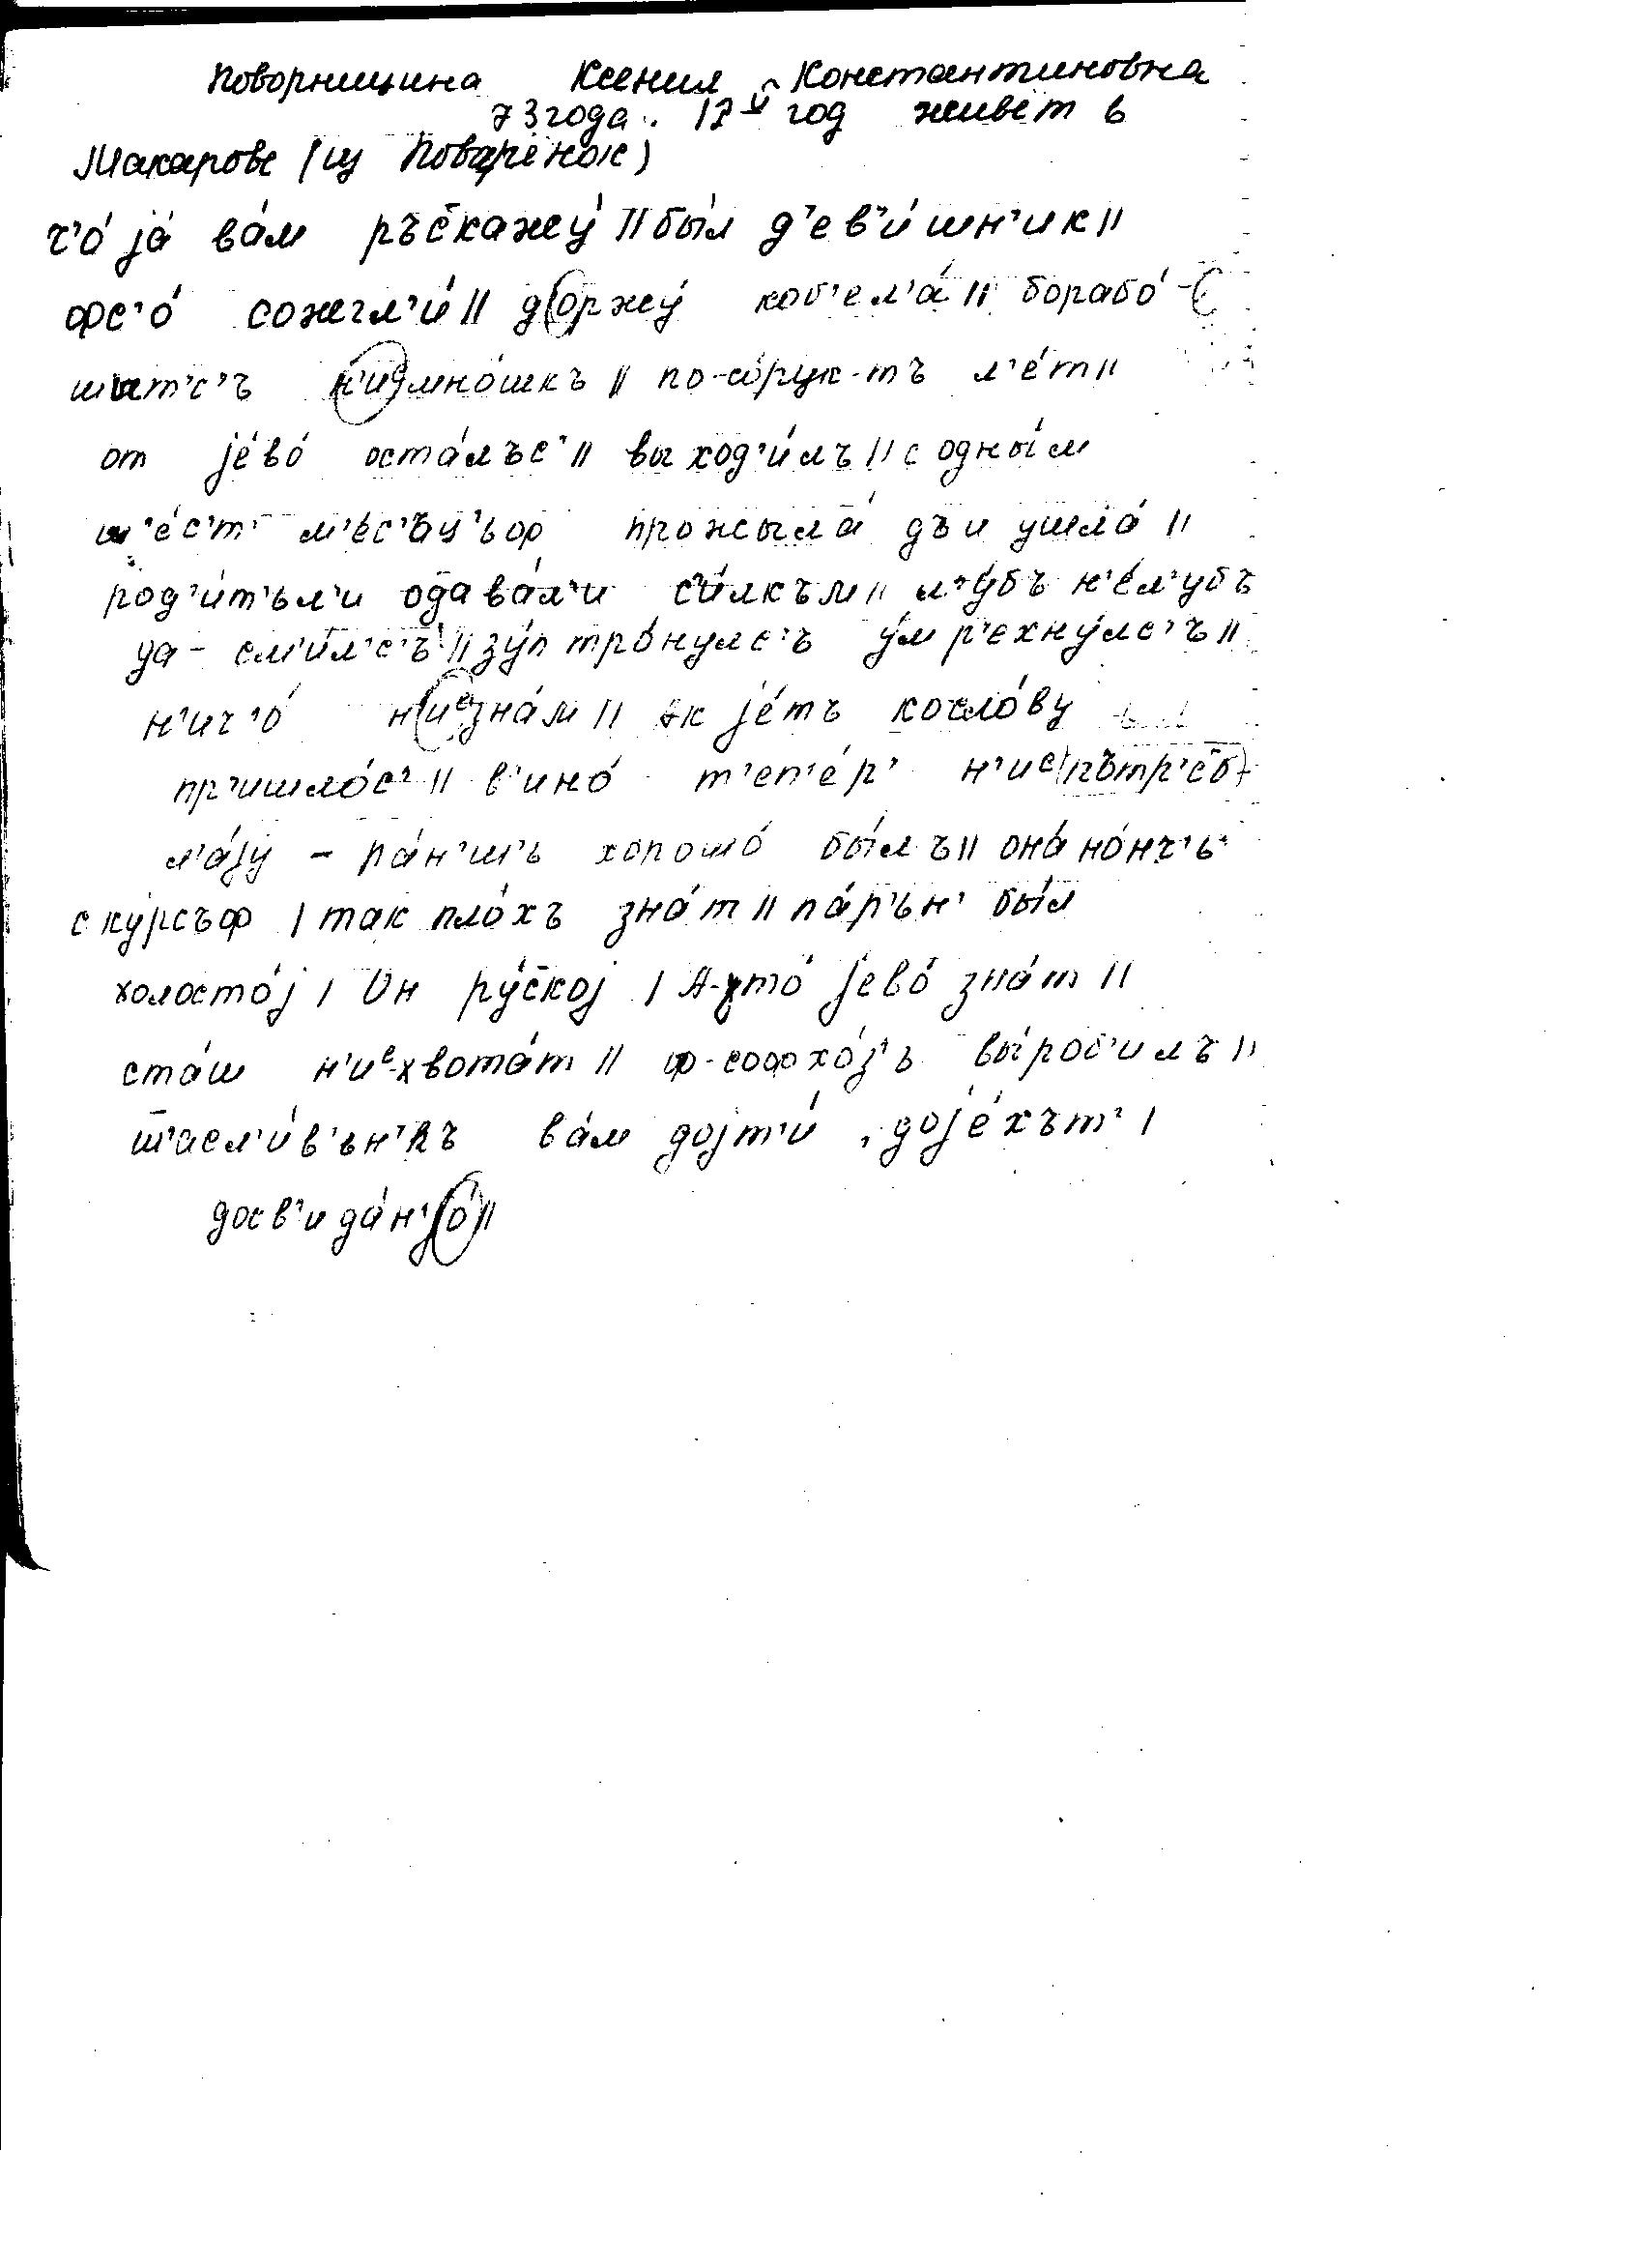 Поворницина Ксения Константиновна
73 года. 17й год живет в
Макарове (из Поварёнок)
ч'о́ jа́ ва́м ръс̄кажу́ || бы́л д'ев'и́шн'ик ||
фс'о́ сожгл'и́ || доржу́ коб'ел'а́ || борабо́-
шыт'с'ъ н'иэмно́шкъ || по-со́рук-тъ л'е́т ||
от jево́ оста́лъс' || выход'и́лъ || с одны́м
ш'е́с'т' м'е́с'ъц'ъф прожыла́ дъ и ушла́ ||
род'и́т'ьл'и од̄ава́л'и с'и́лкъм || л'у́бъ н'е́л'убъ
да - см'ил'с'ъ || зу́п тро́нулс'ъ у́м р'ехну́лс'ъ ||
н'ич'о́ н'иезна́м || эк jе́тъ кослову
пр'ишло́с' || в'ино́ т'еп'е́р' н'иепътр'еб-
л'а́jу - ра́н'ш'ь хорошо́ бы́лъ || она́ но́нч'ь
с ку́рсъф | так пло́хъ зна́т || па́р'ьн' бы́л
холосто́j | Он ру́с̄коj | А-хто́ jево́ зна́т ||
ста́ш н'ие-хвота́т || ф-софхо́з'ъ вы́роб'илъ ||
ш̄'асл'и́в'ьн'къ ва́м доjт'и́, доjе́хът' |
досв'ида́н'jо ||